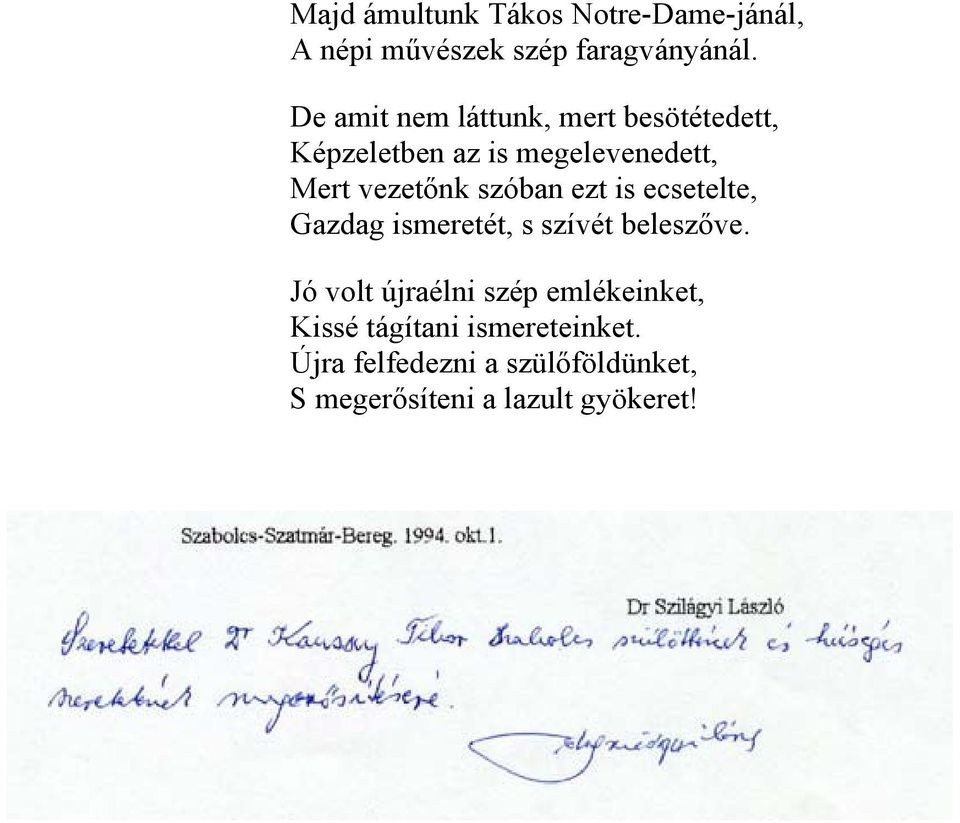 Majd ámultunk Tákos Notre-Dame-jánál,
A népi művészek szép faragványánál.
De amit nem láttunk, mert besötétedett,
Képzeletben az is megelevenedett,
Mert vezetőnk szóban ezt is ecsetelte,
Gazdag ismeretét, s szívét beleszőve.
Jó volt újraélni szép emlékeinket,
Kissé tágítani ismereteinket.
Újra felfedezni a szülőföldünket,
S megerősíteni a lazult gyökeret!
Szabolcs-Szatmár-Bereg. 1994. okt.1.
Dr Szilágyi László
Szeretettel Dr Kaussay Tibor Szabolcs szülöttének és hűséges
szeretetének megerősítésére.